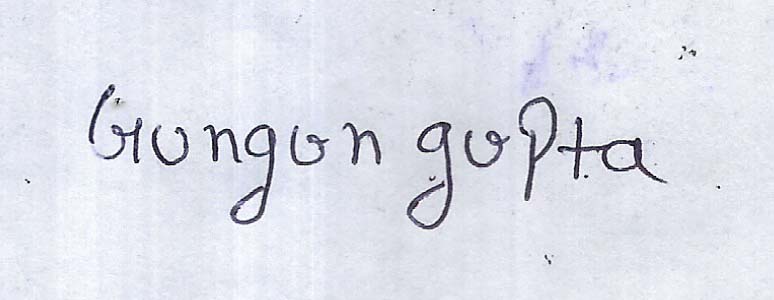 Gungun gupta